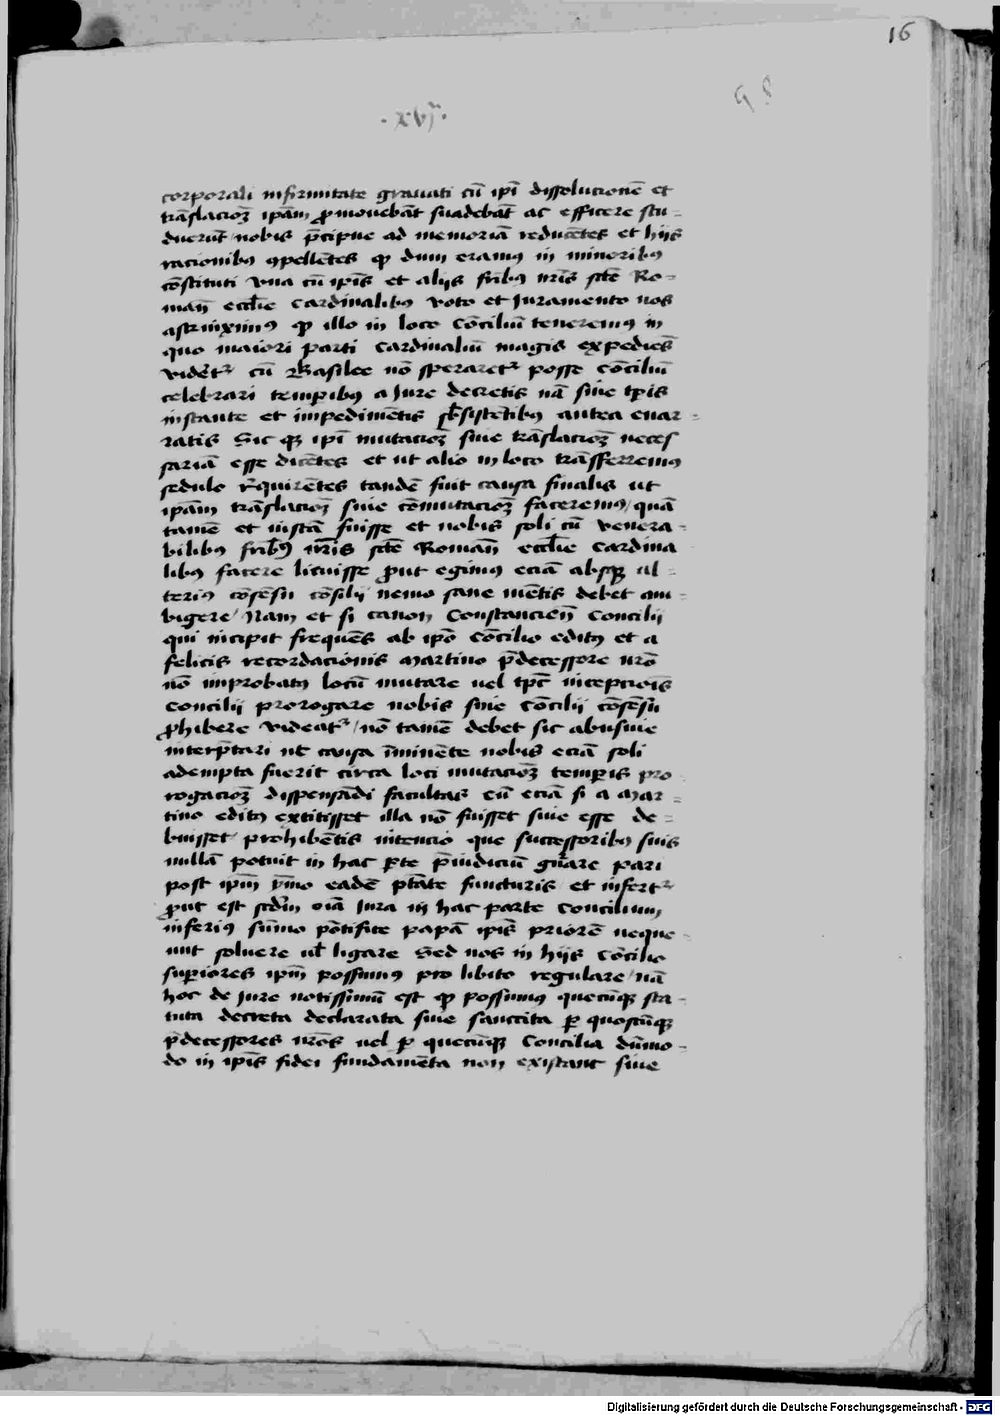 16
. xvj .
corporali infirmitate grauati cū ip̄i dissolucionē et
trāslacioꝫ ip̄am ꝓmouebāt suadebāt ac efficere stu-
duerūt / nobis p̄cipue ad memoriā reducētes et hijs
racionibꝰ ꝯpellētes ꝙ dum eramꝰ in minoribꝰ
cōstituti vna cū ip̄is et alijs fr̄ibꝰ nr̄is sc̄te Ro-
man̄ eccl̄ie Cardinalibꝰ voto et Juramento nos
astrinximꝰ ꝙ illo in loco Cōciliū teneremꝰ in
quo maiori parti Cardinaliū magis expediēs
vider̄t cū Basilee nō speraret̄ posse Cōciliū
celebrari temp̄ibꝰ a Jure decretis nā siue tp̄is
instante et impedimētis sb̄sistētibꝰ antea enar-
ratis Sic qꝫ ip̄i mutacioꝫ siue trāslacioꝫ neces
sariā esse dicētes et ut alio in loco trāsferremꝰ
sedulo r̄quirētes tandē fuit causa finalis ut
ip̄am trāslacioꝫ siue cōmutacioꝫ faceremꝰ / quā
tamē et iustā fuisse et nobis soli cū venera-
bilibꝰ fr̄ibꝰ nr̄is sc̄te Roman̄ eccl̄ie Cardina
libꝰ facere licuisse ꝓut egimꝰ eciā absqꝫ al-
teriꝰ cōsēsu cōsilij nemo sane mētis debet am-
bigere / Nam et si canon Constancien̄ Concilij
qui incipit frequēs ab ip̄o Cōcilio editꝰ et a
felicis recordacionis Martino p̄decessore nr̄o
nō improbatꝰ locū mutare uel tp̄s incepciois̄
Concilij prorogare nobis sine Cōcilij cōsēsu
ꝓhibere videat̄ / nō tamē debet sic abusiue
interp̄tari ut causa īminēte nobis eciā soli
adempta fuerit circa loci mutacioꝫ temp̄is pro
rogacioꝫ dispensādi facultas Cū eciā si a Mar-
tino editꝰ extitisset illa nō fuisset siue esse de-
buisset prohibētis intencio que successoribꝰ suis
nullā potuit in hac p̄te p̄iudiciū gn̄are pari
post ip̄m ymo eadē ptāte functuris et infert̄
ꝓut est scd̄m oīa Jura in hac parte Concilium
inferiꝰ sūmo pōtifice papā ip̄is priorē neque-
unt soluere ul̄ ligare Sed nos in hijs Cōcilio
sup̄iores ip̄m possumꝰ pro libito regulare / nā
hoc de Jure notissimū est ꝙ possumꝰ quecūqꝫ sta-
tuta decreta declarata siue sanccita ꝑ quoscūqꝫ
p̄decessores nr̄os uel ꝑ quecūqꝫ Concilia dūmo-
do in ip̄is fidei fundamēta non existant siue
Digitalisierung gefördert durch die Deutsche Forschungsgemeinschaft - DFG